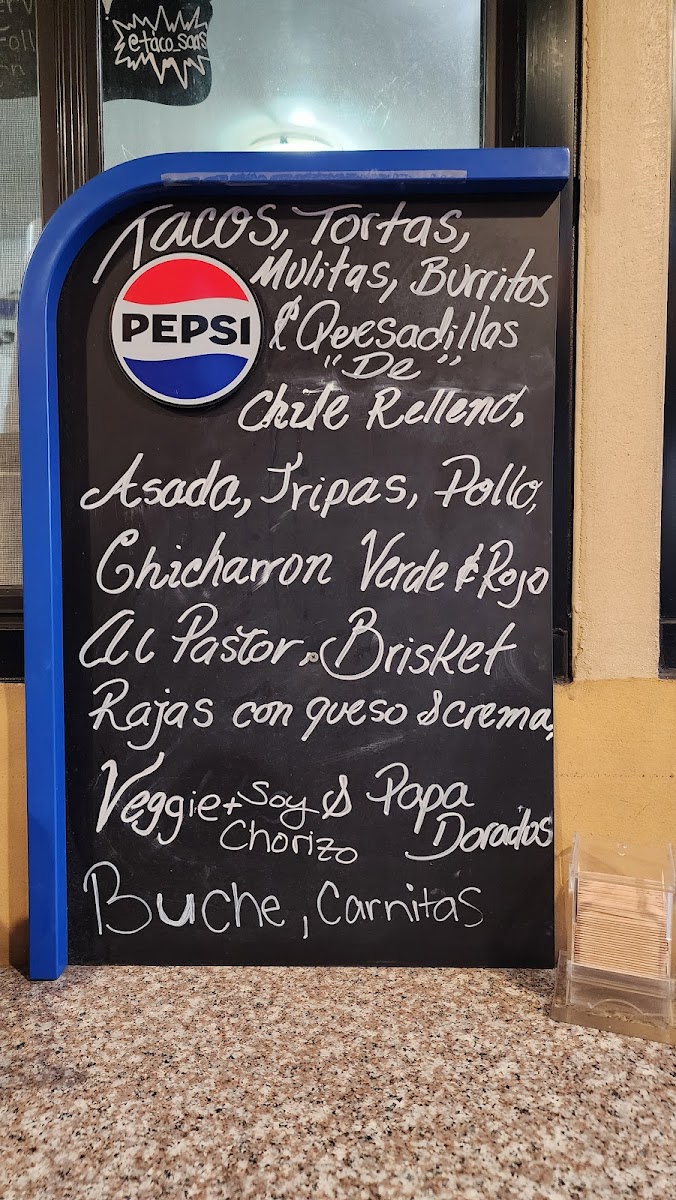 @taco_saas
Tacos, Tortas,
Mulitas, Burritos
PEPSI
& Quesadillas
"De"
Chile Relleno,
Asada, Tripas, Pollo,
Chicharron Verde & Rojo
Al Pastor, Brisket
Rajas con queso & crema,
Veggie + Soy & Papa
Chorizo Dorados
Buche, Carnitas